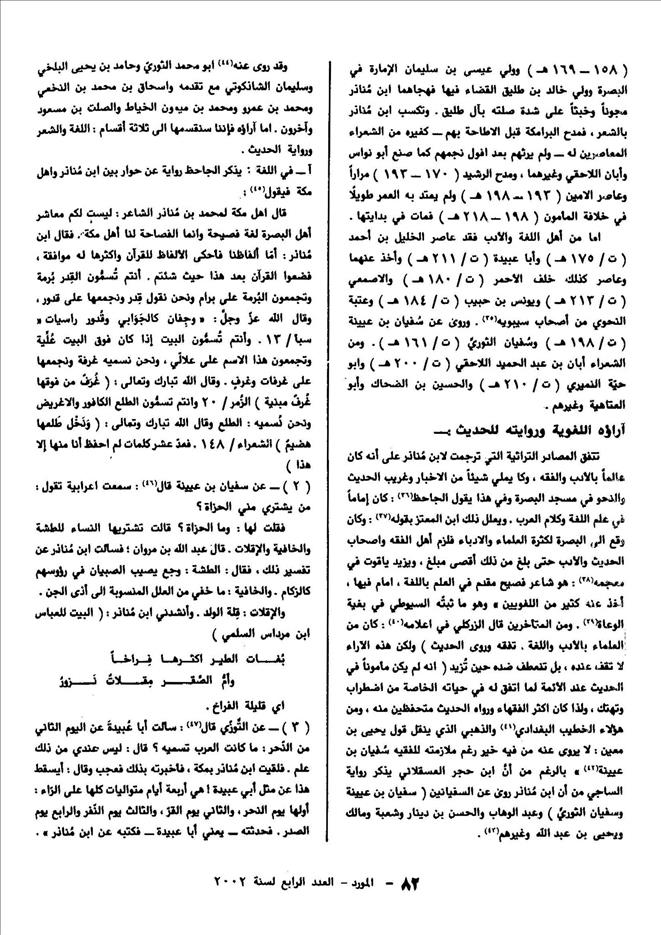 ( ١٥٨ ــ ١٦٩ هـ ) وولي عيسى بن سليمان الإمارة في
البصرة وولي خالد بن طليق القضاء فيها فهجاهما ابن مُناذر
مجوناً وخبثاً على شدة صلته بآل طليق . وتكسب ابن مُناذر
بالشعر ، فمدح البرامكة قبل الاطاحة بهم ــ كغيره من الشعراء
المعاصرين له ــ ولم يرثهم بعد افول نجمهم كما صنع أبو نواس
وأبان اللاحقي وغيرهما ، ومدح الرشيد ( ١٧٠ ــ ١٩٣ ) مراراً
وعاصر الامين ( ١٩٣ ــ ١٩٨ هـ ) ولم يمتد به العمر طويلًا
في خلافة المأمون ( ١٩٨ ــ ٢١٨ هـ ) فمات في بدايتها .
اما من أهل اللغة والأدب فقد عاصر الخليل بن أحمد
( ت / ١٧٥ هـ ) وأبا عبيدة ( ت / ٢١١ هـ ) وأخذ عنهما
وعاصر كذلك خلف الأحمر ( ت / ١٨٠ هـ ) والاصمعي
( ت / ٢١٣ هـ ) ويونس بن حبيب ( ت / ١٨٤ هـ ) وعتبة
النحوي من أصحاب سيبويه(٣٥) . وروى عن سُفيان بن عيينة
( ت / ١٩٨ هـ ) وسُفيان الثوريّ ( ت / ١٦١ هـ ) . ومن
الشعراء أبان بن عبد الحميد اللاحقي ( ت / ٢٠٠ هـ ) وابو
حيّة النميري ( ت / ٢١٠ هـ ) والحسين بن الضحاك وأبو
العتاهية وغيرهم .
آراؤه اللغوية وروايته للحديث :ــ
تتفق المصادر التراثية التي ترجمت لابن مُناذر على أنه كان
عالماً بالأدب والفقه ، وكا يملي شيئاً من الاخبار وغريب الحديث
والنحو في مسجد البصرة وفي هذا يقول الجاحظ(٣٦) : كان إماماً
في علم اللغة وكلام العرب . ويعلل ذلك ابن المعتز بقوله(٣٧) : وكان
وقع الى البصرة لكثرة العلماء والادباء فلزم أهل الفقه واصحاب
الحديث والأدب حتى بلغ من ذلك أقصى مبلغ ، ويزيد ياقوت في
معجمه(٣٨) : هو شاعر فصيح مقدم في العلم باللغة ، امام فيها ،
أخذ عنه كثير من اللغويين » وهو ما ثبتّه السيوطي في بغية
الوعاة(٣٩) . ومن المتأخرين قال الزركلي في اعلامه(٤٠) : كان من
العلماء بالأدب واللغة . تفقه وروى الحديث ) ولكن هذه الآراء
لا تقف عنده ، بل تنعطف ضده حين تُزيد ( انه لم يكن مأموناً في
الحديث عند الأئمة لما اتفق له في حياته الخاصة من اضطراب
وتهتك ، ولذا كان اكثر الفقهاء ورواه الحديث متحفظين منه ، ومن
هؤلاء الخطيب البغدادي(٤١) والذهبي الذي ينقل قول يحيى بن
معين : لا يروى عنه من فيه خير رغم ملازمته للفقيه سُفيان بن
عيينة(٤٢) » بالرغم من أنْ ابن حجر العسقلاني يذكر رواية
الساجي من أن ابن مُناذر روى عن السفيانين ( سفيان بن عيينة
وسفيان الثوريّ ) وعبد الوهاب والحسن بن دينار وشعبة ومالك
ويحيى بن عبد الله وغيرهم(٤٣) .
وقد روى عنه(٤٤) ابو محمد الثوريّ وحامد بن يحيى البلخي
وسليمان الشاذكوني مع تقدمه واسحاق بن محمد بن النخعي
ومحمد بن عمرو ومحمد بن ميمون الخياط والصلت بن مسعود
وآخرون . اما آراؤه فإننا سنقسمها الى ثلاثة أقسام : اللغة والشعر
ورواية الحديث .
آ ــ في اللغة : يذكر الجاحظ رواية عن حوار بين ابن مُناذر واهل
مكة فيقول(٤٥) :
قال اهل مكة لمحمد بن مُناذر الشاعر : ليست لكم معاشر
أهل البصرة لغة فصيحة وانما الفصاحة لنا أهل مكة . فقال ابن
مُناذر : أمّا ألفاظنا فأحكى الألفاظ للقرآن واكثرها له موافقة ،
فضعوا القرآن بعد هذا حيث شئتم . أنتم تُسمُّون القِدر بُرمة
وتجمعون البُرمة على برام ونحن نقول قِدر ونجمعها على قدور ،
وقال الله عزّ وجلّ : » وجِفان كالجَوابي وقُدور راسيات »
سبأ / ١٣ . وأنتم تُسمُّون البيت إذا كان فوق البيت عُلّية
وتجمعون هذا الاسم على علالّي ، ونحن نسميه غرفة ونجمعها
على غرفات وغرفٍ . وقال الله تبارك وتعالى : ( غُرَفٌ من فوقها
غُرفٌ مبنية ) الزُمر / ٢٠ وانتم تسمُّون الطلع الكافور والاغريض
ونحن نُسميه : الطلع وقال الله تبارك وتعالى : ( ونَخْل طَلعها
هضيمٌ ) الشعراء / ١٤٨ . فمدّ عشر كلمات لم احفظ أنا منها إلا
هذا )
( ٢ ) ــ عن سفيان بن عيينة قال(٤٦) : سمعت اعرابية تقول :
من يشتري مني الحزاة ؟
فقلت لها : وما الحزاة ؟ قالت تشتريها النساء للطشة
والخافية والإقلات . قال عبد الله بن مروان : فسألت ابن مُناذر عن
تفسير ذلك ، فقال : الطشة : وجع يصيب الصبيان في رؤوسهم
كالزكام . والخافية : ما خفي من العلل المنسوبة الى أذى الجن .
والإقلات : قِلة الولد . وأنشدني ابن مُناذر : ( البيت للعباس
ابن مرداس السلمي )
بُغـاث الطير اكثرها فِراخـاً
وأمُّ الصَّقر مِقلاتٌ نَـزورُ
اي قليلة الفراخ .
( ٣ ) ــ عن التّوزّي قال(٤٧) : سألت أبا عُبيدةَ عن اليوم الثاني
من النّحر : ما كانت العرب تسميه ؟ قال : ليس عندي من ذلك
علم . فلقيت ابن مُناذر بمكة ، فأخبرته بذلك فعجب وقال : أيسقط
هذا عن مثل أبي عبيدة ! هي أربعة أيام متواليات كلها على الرّاء :
أولها يوم النحر ، والثاني يوم القرّ ، والثالث يوم النّفر والرابع يوم
الصدر . فحدثته ــ يعني أبا عبيدة ــ فكتبه عن ابن مُناذر » .
٨٢ - المورد - العدد الرابع لسنة ٢٠٠٢